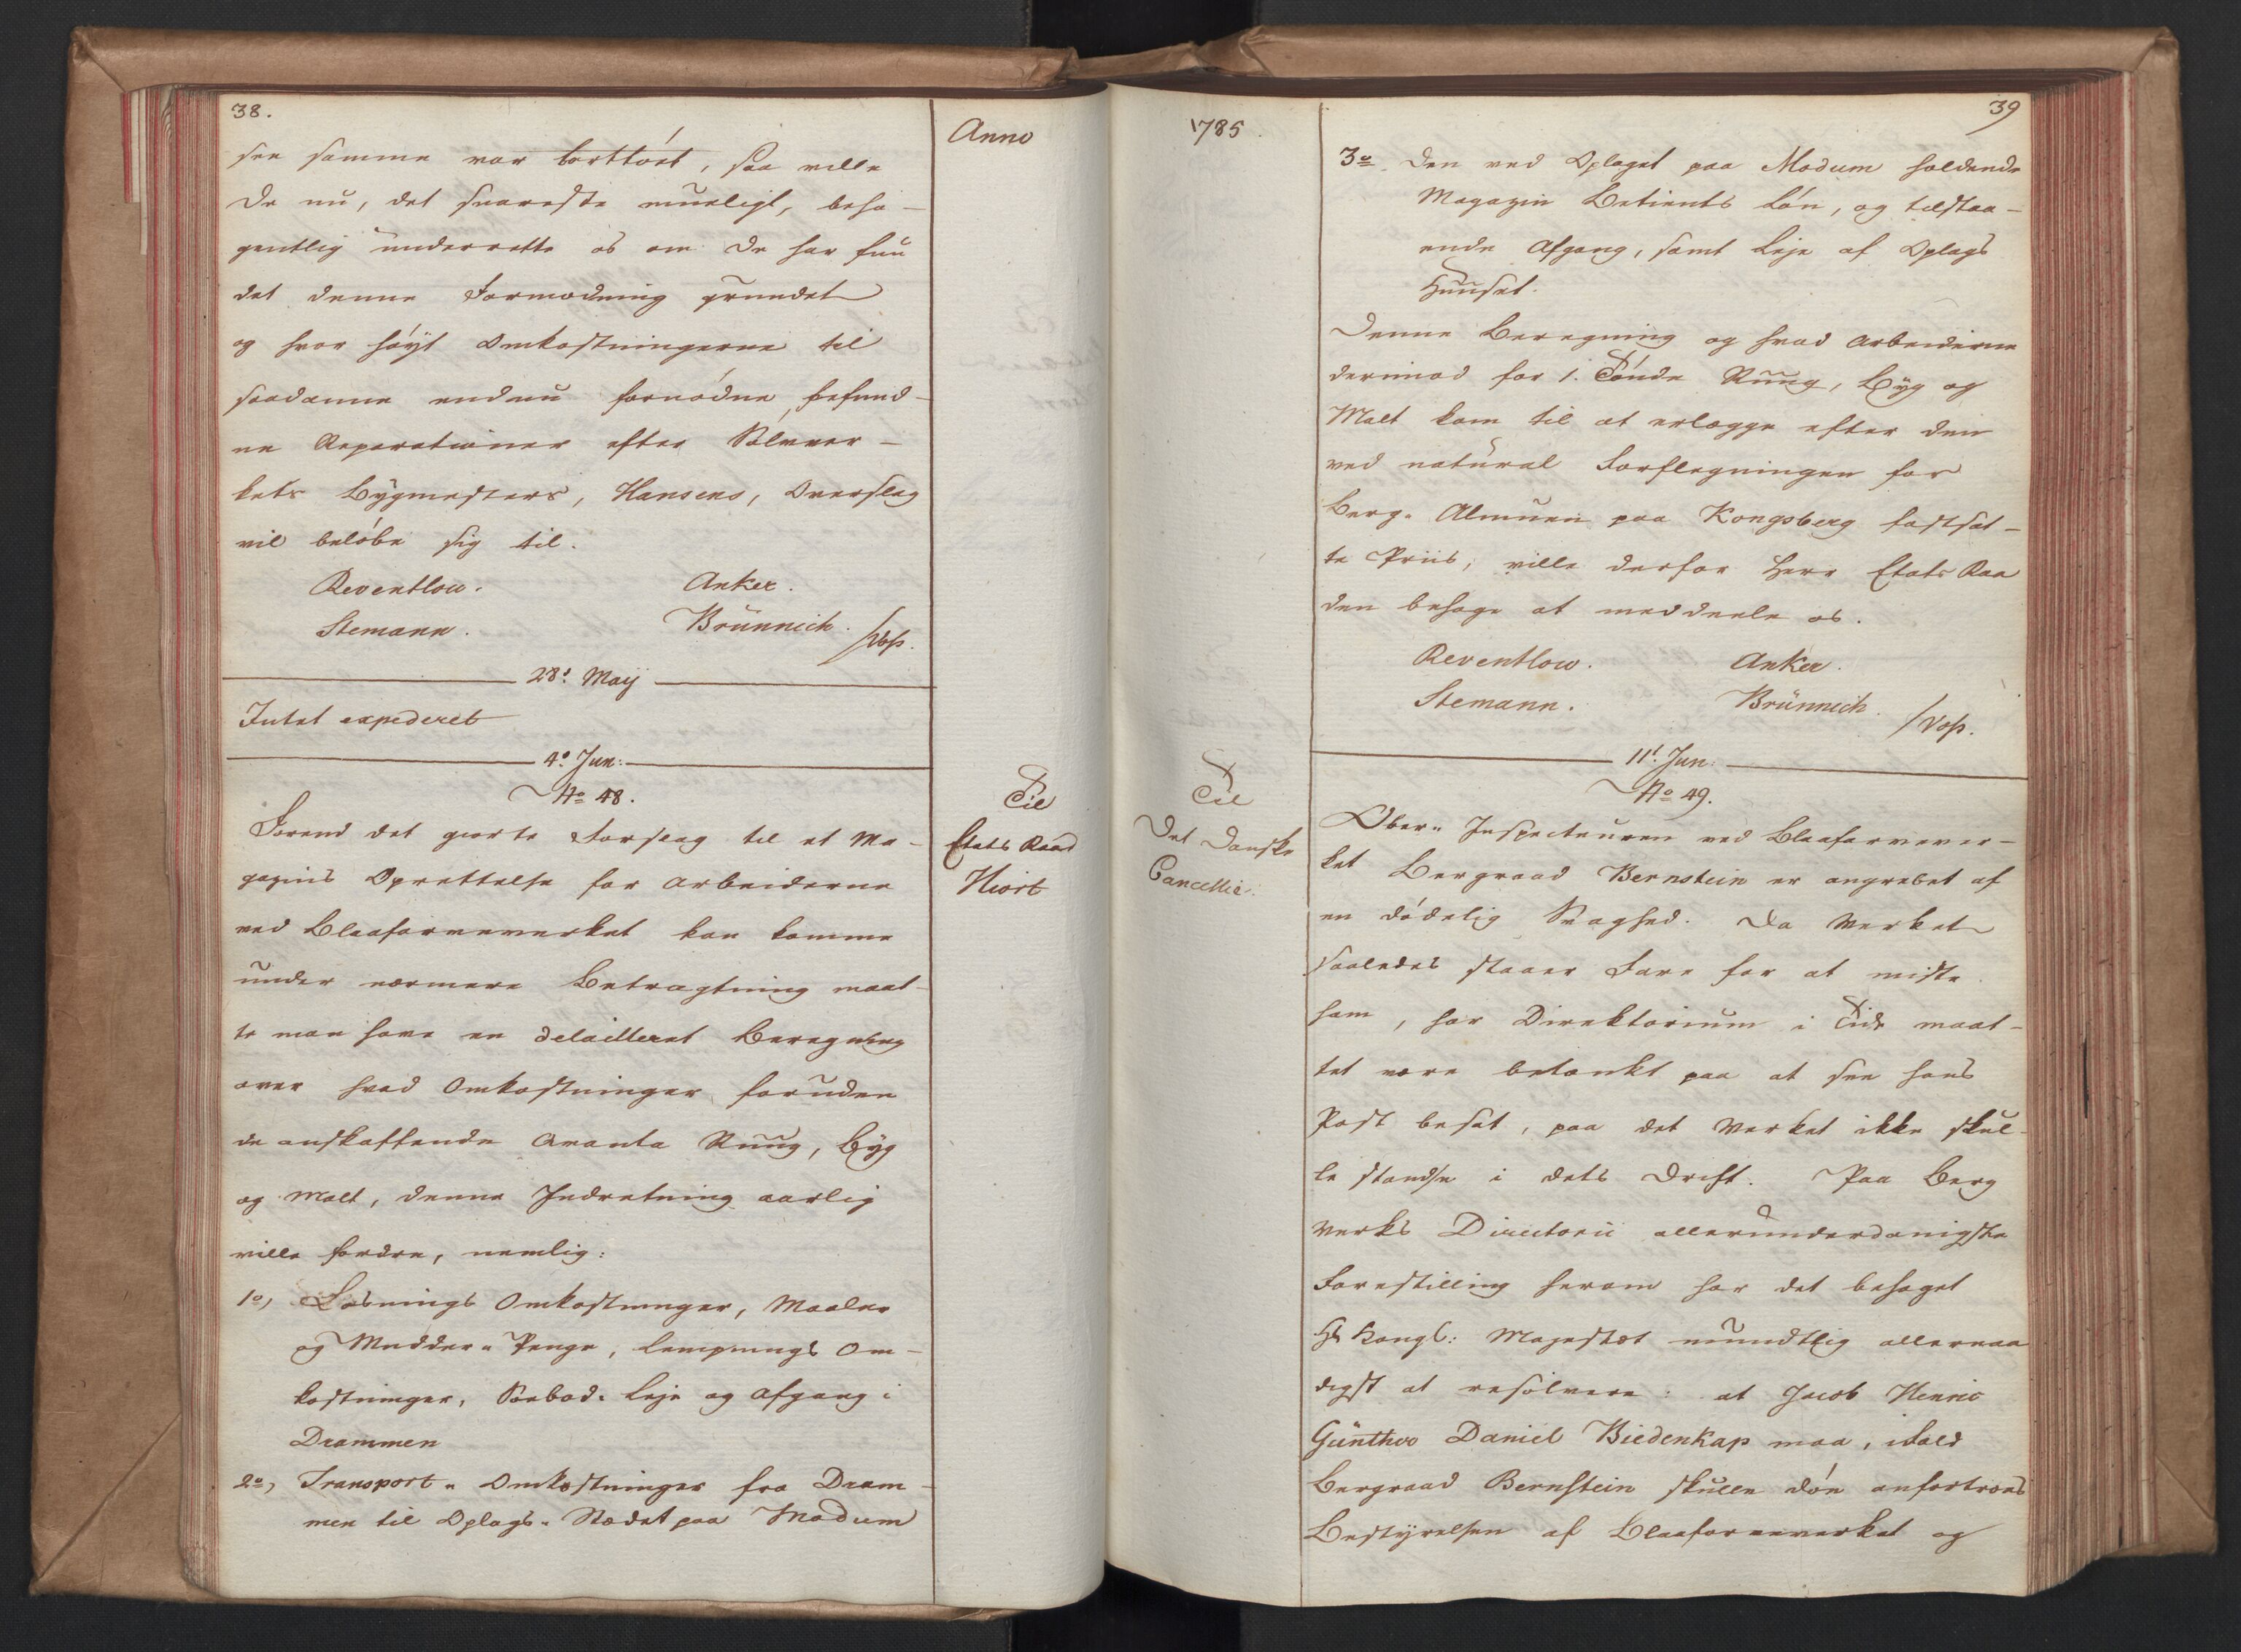 38.
Anno
see samme var borttört, saa ville
De nu, det snareste mueligt, beha-
gentlig underrette os om De har fun
det denne Formodning grundet
og hvor höyt Omkostningerne til
saadanne endnu fornödne befund-
ne Reparationer efter Sölvver-
kets Bÿgmesters, Hansens, Overslag
vil belöbe sig til.
Reventlow. Anker.
Stemann. Brünnich.
/Voss.
28. Maij
Intet expederet
4. Jun:
No 48.
Til
Etats Raad
Hiort
Forend det giorte Forslag til et Ma-
gazins Oprettelse for Arbeiderne
ved Blaafarveverket kan komme
under nærmere Betragtning maat-
te man have en detailleret Beregning
over hvad Omkostninger foruden
de anskaffende Qvanta Ruug, Bÿg
og Malt, denne Indretning aarlig
ville fordre, nemlig:
1o, Losnings Omkostninger, Maaler
og Mudder-Penge, Lempnings Om-
kostninger, Söebod-Leje og Afgang i
Drammen
2o, Transport-Omkostninger fra Dram-
men til Oplags-Stædet paa Modum
1785.
39
3o Den ved Oplaget paa Modum holdende
Magazin Betients Lön, og tilstaa-
ende Afgang, samt Leje af Oplags
Huuset.
Denne Beregning og hvad Arbeiderne
derimod for 1. Tönde Ruug, Bÿg og
Malt kom til at erlægge efter den
ved natural Forflegningen for
Berg-Almuen paa Kongsberg fastsat-
te Priis, ville derfor Herr Etats Raa
den behage at meddeele os.
Reventlow. Anker.
Stemann. Brünnich.
/Voss.
11. Jun:
No 49.
Til
Det Danske
Cancellie.
Ober-Inspecteuren ved Blaafarvever-
ket Bergraad Bernstein er angrebet af
en dödelig Svaghed. Da Verket
saaledes staaer Fare for at miste
ham, har Direktorium i Tide maat-
tet være betænkt paa at see hans
Post besat, paa det Verket ikke skul-
le standse i dets Drift. Paa Berg
verks Directorii allerunderdanigste
Forestilling herom har det behaget
Hs Kongl: Majestæt mundtlig allernaa
digst at resolvere: at Jacob Henric
Günther Daniel Biedenkap maa, ifald
Bergraad Bernstein skulle döe anfortroes
Bestyrelsen af Blaafarveverket og